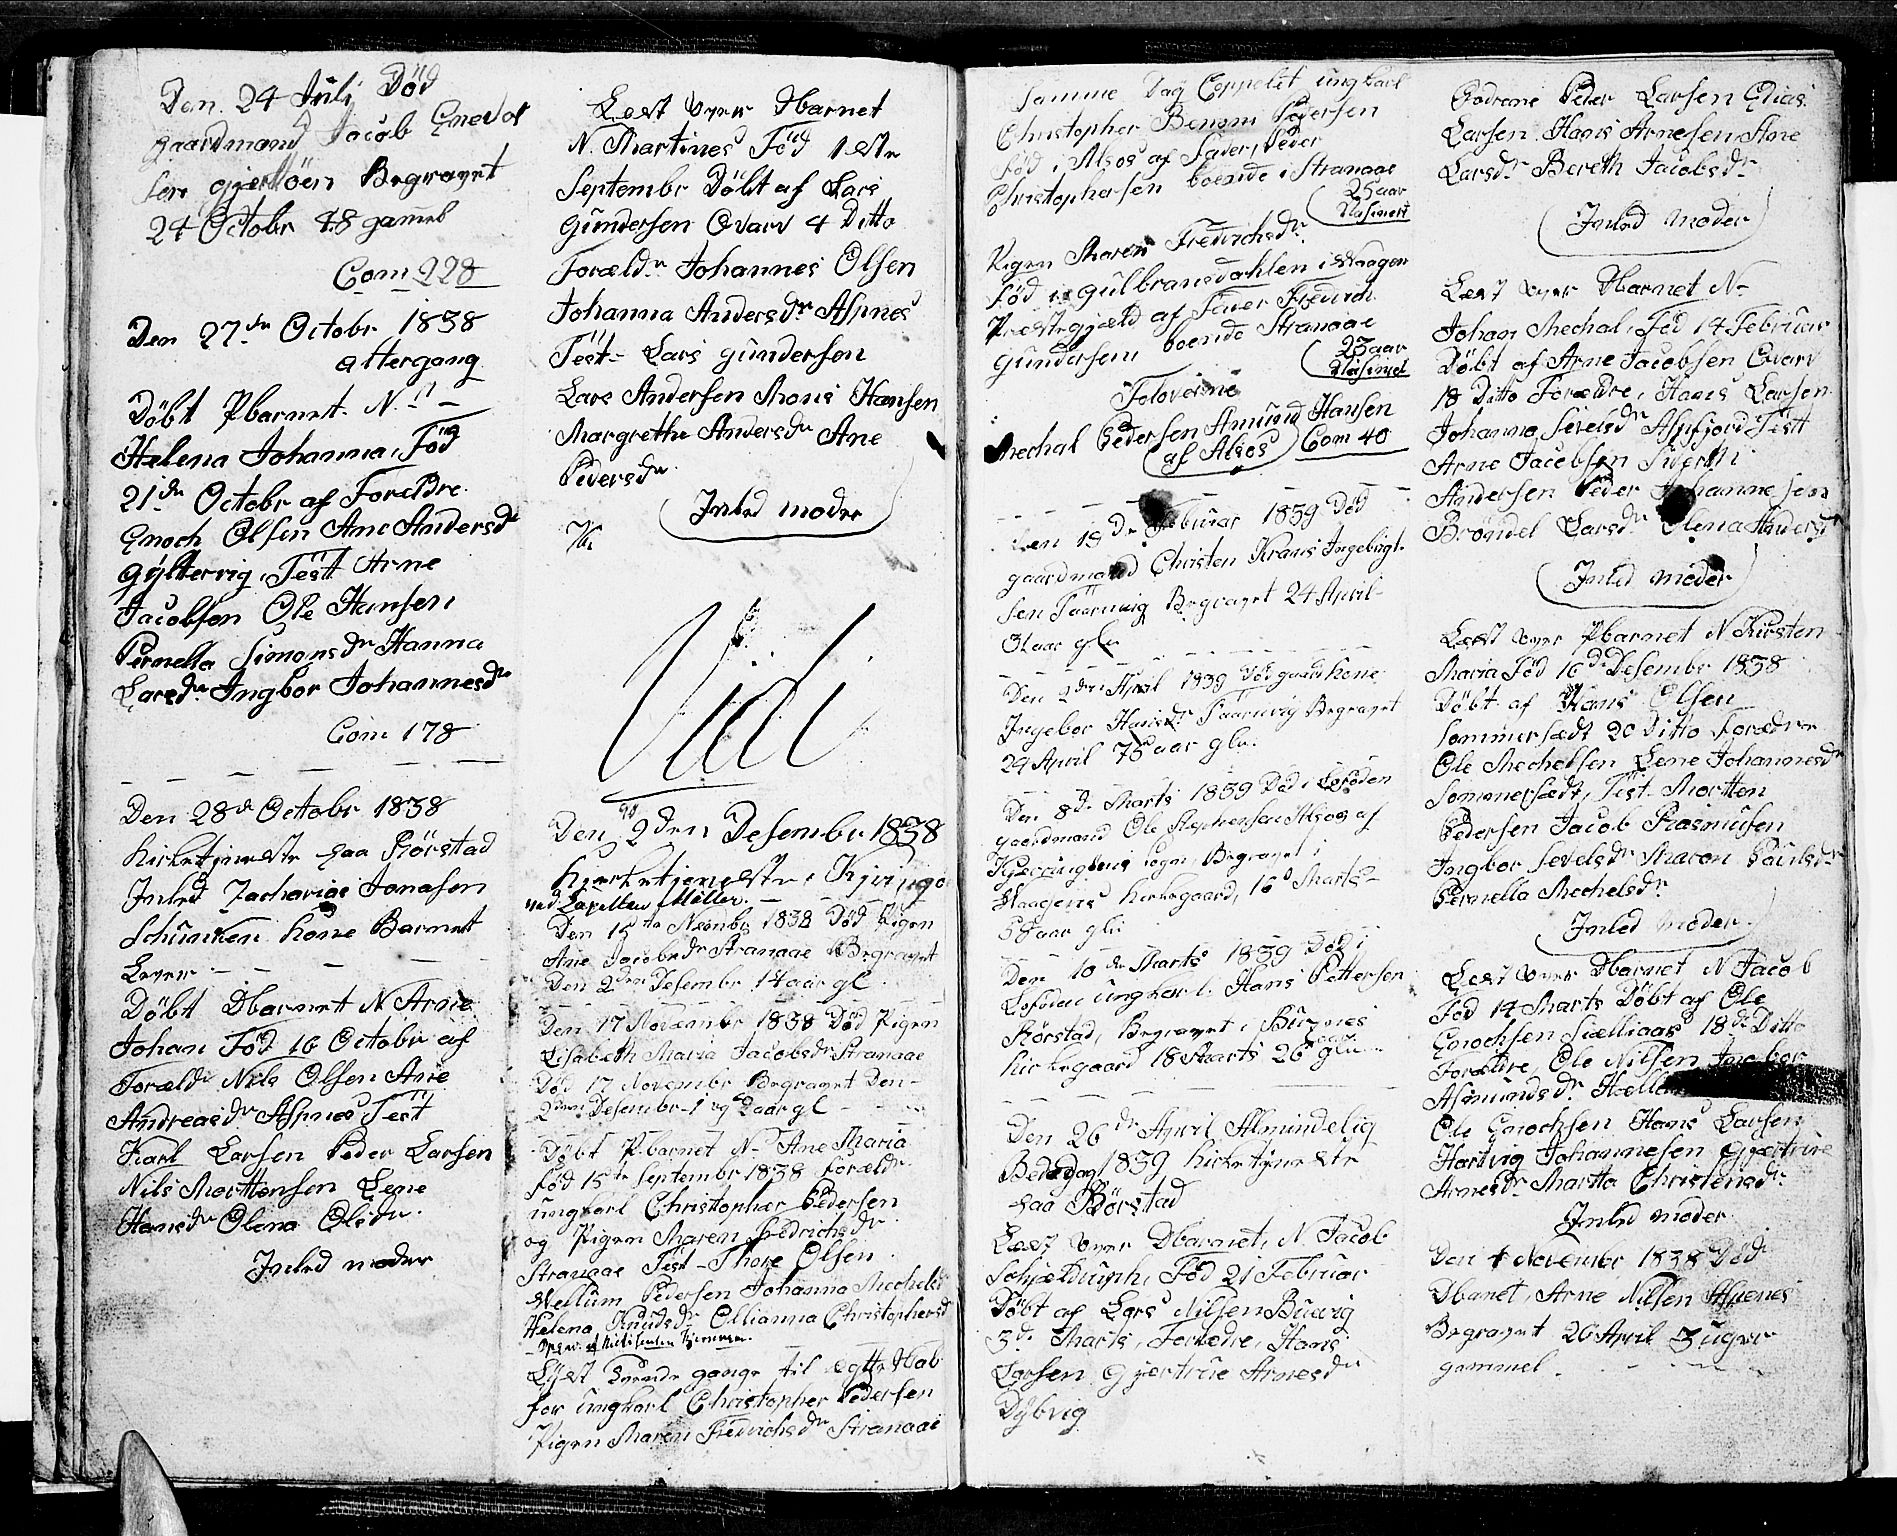 Den 24 Juli Död
gaardmand Jacob Enevol
sen gjerlöen Begravet
24 Octobr 48 gammel
Com 228
Den 27de Octobr 1838
attergang
Döbt Pbarnet N.
Helena Johanna, Föd
21de Octobr af Forældre
Enoch Olsen Ane Andersdr
Gyltervig, Tëstt Arne
Jacobsen Ole Hansen
Pernella Simonsdr Hanna
Larsdr Ingbor Johannesdr
Com 178
Den 28de Octobr 1838
Kirketjeneste paa Rörstad
Inled Zacharias Jonasen
Schunken kone Barnet
Lever
Döbt Dbarnet N Arne
Johan Föd 16 Octobr af
Foræld Nils Olsen Ane
Andreasdr Aspnes Test
Karl Larsen Peder Larsen
Nils Morttensen Lene
Hansdr Olena Olsdr
Inled moder
Lest over Dbarnet
N. Martines Föd 1ste
Septembr Döbt af Lars
Gundersen Qvarv 4 Ditto
Foræld Johannes Olsen
Johanna Andersdr Aspnes
Test Lars gundersen
Lars Andersen Monis Hansen
Margrethe Andersdr Ane
Pedersdr
Inled moder
Vidi
Den 2den Desembr 1838
Kierketjeneste i Kjerringö
ved Capellan Möller.
Den 15te Novmbr 1838 Död Pigen
Ane Jacobsdr Stranaae Begravet
Den 2den Desembr 14 aar gl
Den 17 Novembr 1838 Död Pigen
Lisabeth Maria Jacobsdr Stranaae
Död 17 Novembr Begravet Den
2den Desembr 1 og aar gl
Döbt Pbarnet N Ane Maria
föd 15te Septembr 1838 foræld
ungkarl Christopher Pedersen
og Pigen Maren Fredrichsdr
Stranaae Test Thore Olsen
Wellum Pedersen Johanna Mechelsd
Helena Knudsdr Ollianna Christophersd
Lyst Tvende gange til ægtte Skab
for ungkarl Christopher Pedersen
Pigen Maren Fredrichsdr Stranaae
Samme Dag Coppelet ungkarl
Christopher Benom Pedersen
föd i Alsos af Fader, Peder
Christophersen boende i Stranaae
25 aar
Vasineret
Pigen Maren Fredrichsdr
föd i Gulbransdahlen i Waagen
Prestegjæld af Fader Fredrich
Gundersen boende Stranaae
23 aar
Vasineret
Foloverne
Mechal Pedersen Amund Hansen
af Alsos Com 40
Den 19de Februar 1839 Död
gaardmand Christen Krans Ingebrigt
sen Taarnvig Begravet 24 April
31 aar gl
Den 2den April 1839 Död gaardkone
Ingebor Hansdr Taarnvig Begravet
24 April 75 aar gl.
Den 8de Marts 1839 Död i Lofoden
gaardmand Ole Stephensen Alsos af
Kjerringöens sogn, Begravet i
Waagens kirkegaard, 16de Marts
58 aar gl
Den 10de Marts 1839 Död i
Lofoden ungkarl Hans Pettersen
Rörstad, Begravet i Buxnes
kirkegaard 18 Marts 26 aar gl
Den 26de April Almindelig
Bededag 1839 kirketyneste
paa Rörstad
Lest over Dbarnet, N. Jacob
Schjelderuph, Föd 21 Februar
Döbt af Lars Nilsen Buevig
3de Marts, Foreldre, Hans
Larsen Gjertrüe Arnesdr
Dybvig
Godrene Peder Larsen Elias
Larsen Hans Arnesen Ane
Larsdr Bereth Jacobsdr
Inled moder
Lest over Dbarnet N
Johan Mechal, Föd 14 Februar
Döbt af Arne Jacobsen Qvarv
18 Ditto Foreldre, Hans Larsen
Johanna Sivelsdr Aspfjord Testt
Arne Jacobsen Siverth
Andersen Peder Johannesen
Bröndel Larsdr Olena Andersd
Inled moder
Lest over Pbarnet N Kirsten
Maria Föd 16de Desembr 1838
Döbt af Hans Olsen
Sommersædt 20 Ditto foreldre
Ole Mechelsen Lene Johannesdr
Sommersædt, Test Mortten
Pedersen Jacob Rasmusen
Ingbor Sevelsdr Maron Paulsdr
Pernella Mechelsdr
Inled moder
Lest over Dbarnet N Jacob
Föd 14 Marts Döbt af Ole
Enochsen Siælliaas 18de Ditto
Foreldre, Ole Nilsen Ingebor
Asmundsdr
Ole Enochsen Hans Larsen
Hartvig Johannesen Gjertrue
Arnesdr Martta Christensdr
Inled moder
Den 4 November 1838 Död
Dbanet, Arne Nilsen Aspenes
Begravet 26 April 3 uger
gammel.